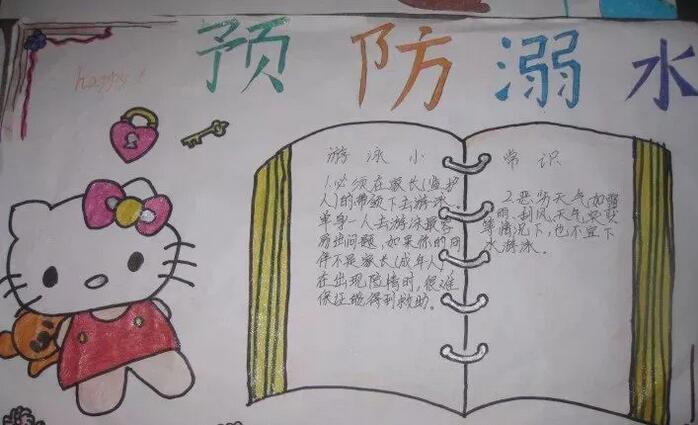 预防溺水
happy!
游泳小常识
1.必须在家长(监护
人)的带领下去游泳。
单身一人去游泳最容
易出问题,如果你的同
伴不是家长(成年人)
在出现险情时,很难
保证她得到救助。
2.恶劣天气(如雷
雨、刮风、天气突变
等情况下,也不宜下
水游泳。